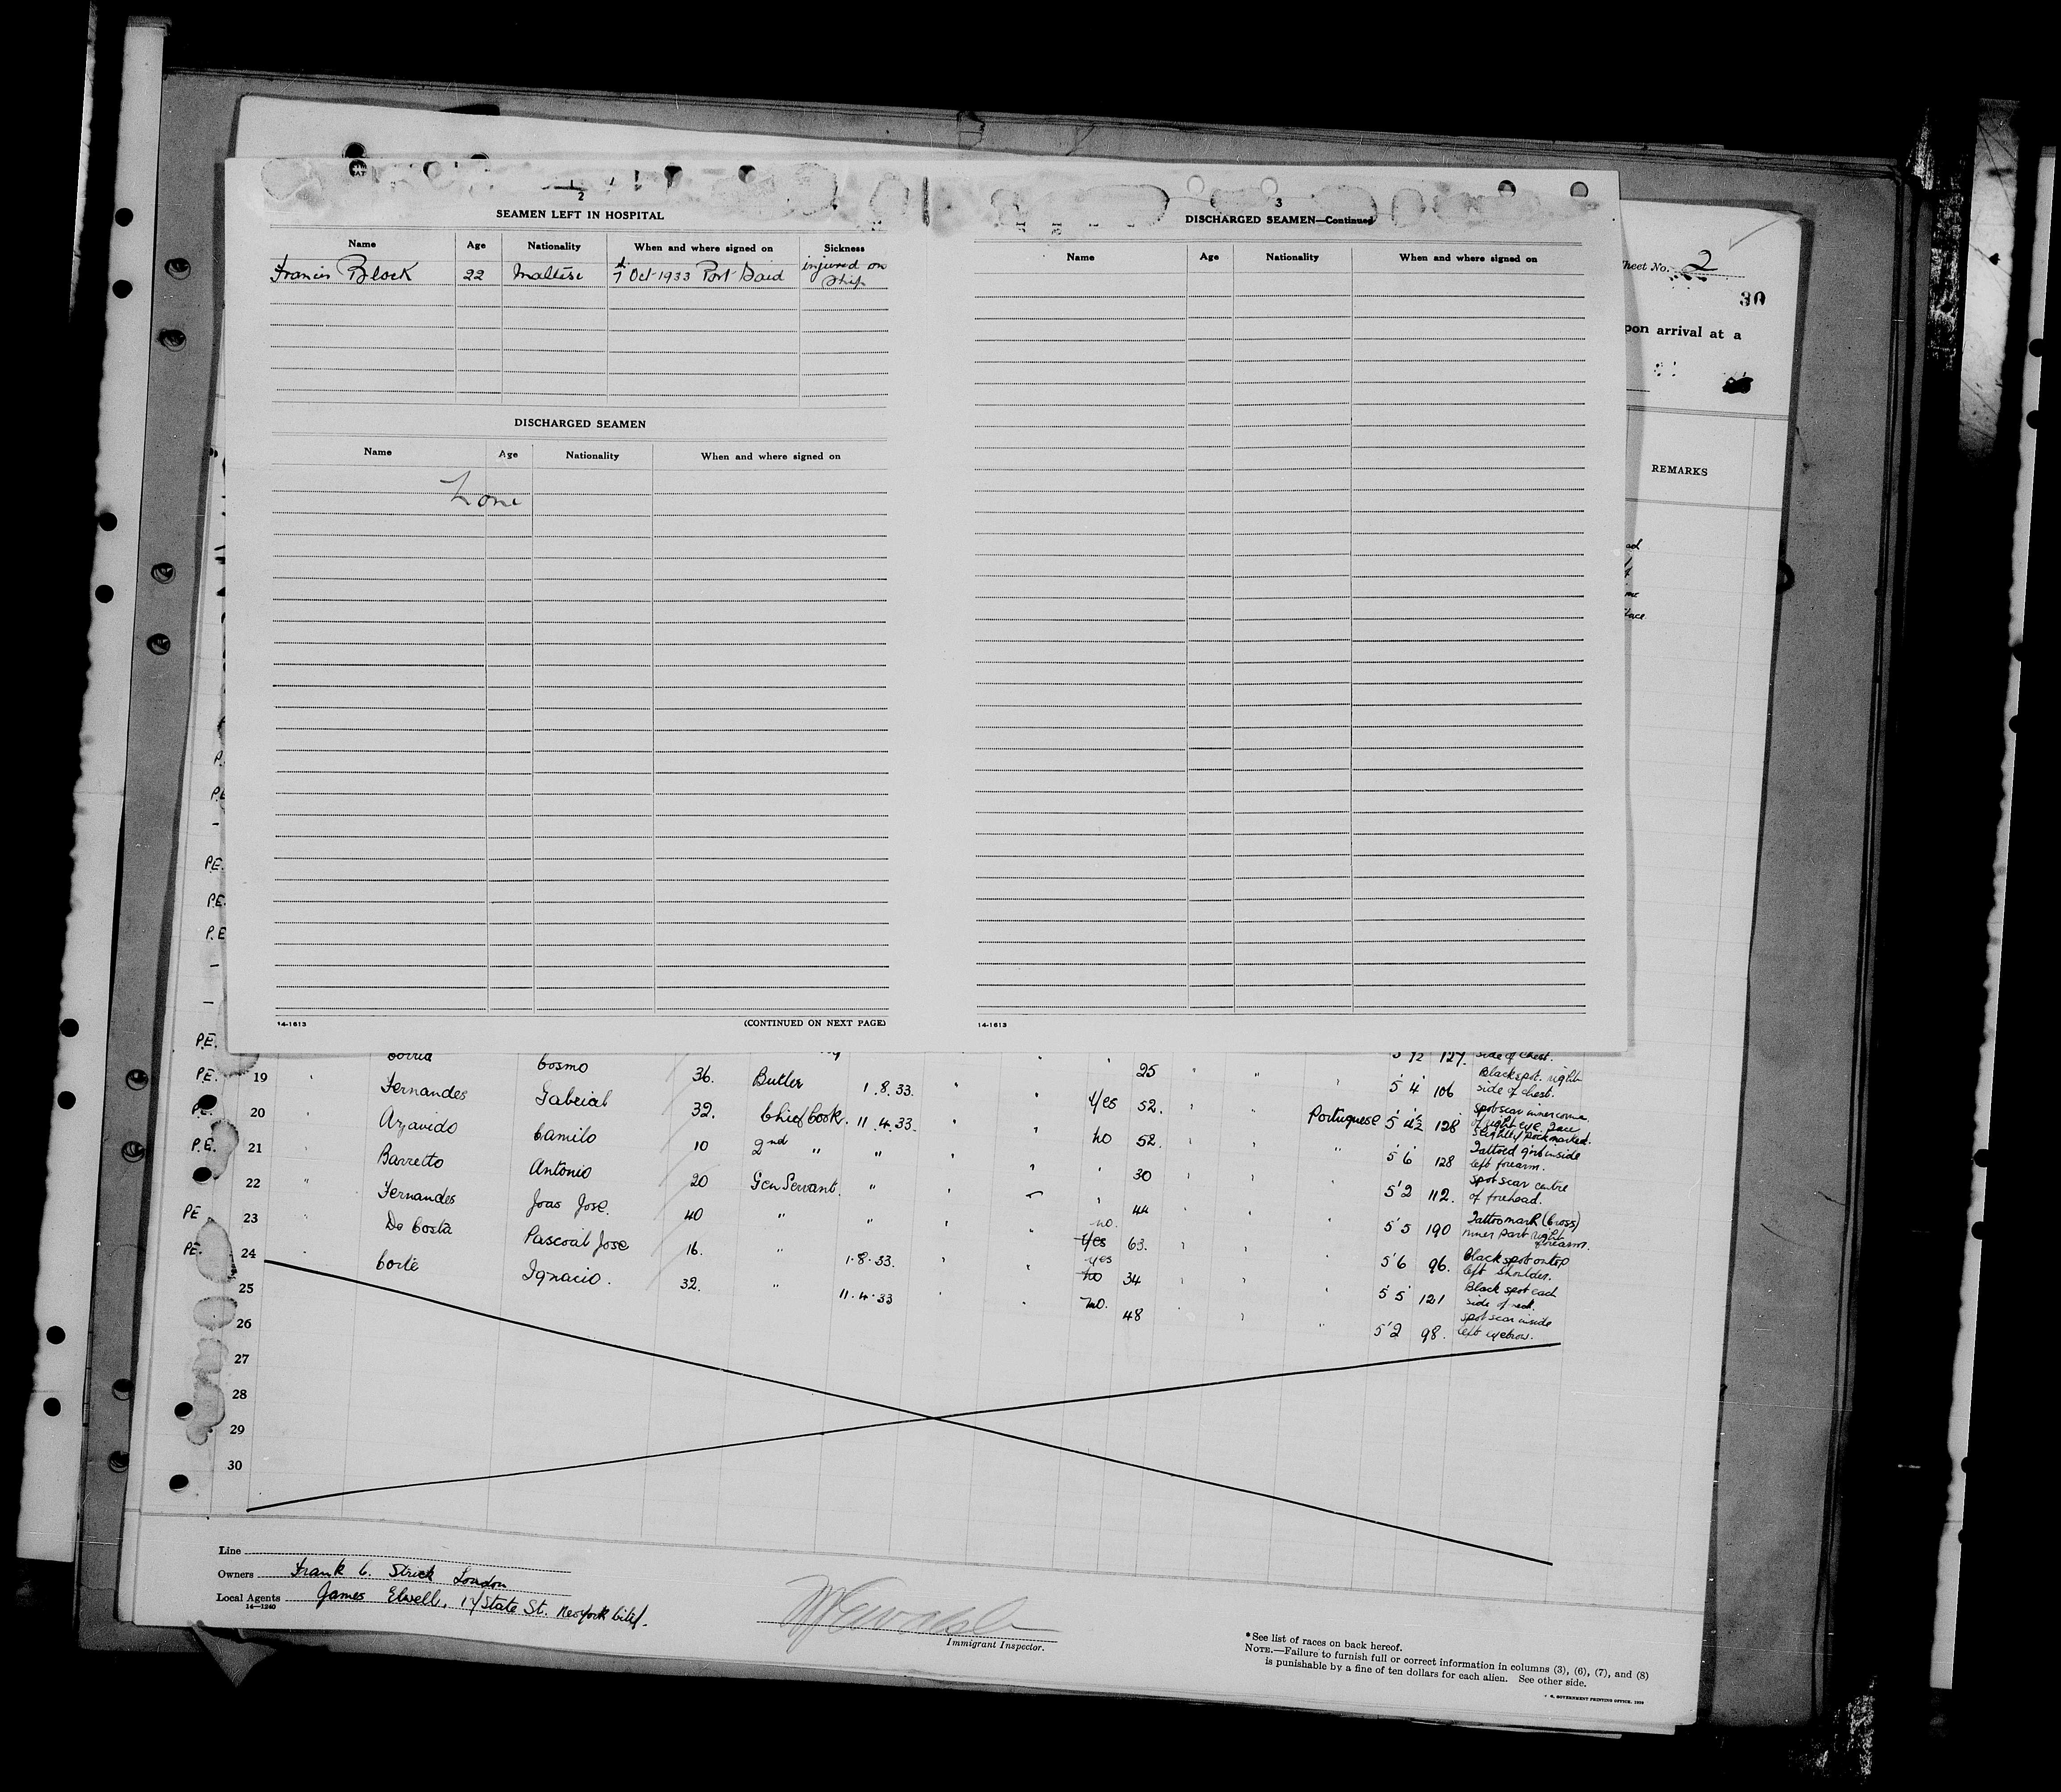 2
SEAMEN LEFT IN HOSPITAL
Name Age Nationality When and where signed on Sickness
Francis Block 22 Maltese 7 Oct 1933 Port Said injured on ship
DISCHARGED SEAMEN
Name Age Nationality When and where signed on
None
14-1613 (CONTINUED ON NEXT PAGE)
3
DISCHARGED SEAMEN—Continued
Name Age Nationality When and where signed on
14-1613
Sheet No. 2
30
pon arrival at a
REMARKS
ad
me
face
P.E.
P.E.
P.E.
P.E.
P.E. Cosmo 36. Butler 1.8.33. 25 127. side of chest.
P.E. 19 Fernandes Gabrial 32. Chief Cook. 11.4.33. Yes 52. 5 4 106 Black spot. right side of chest.
P.E. 20 Azavido Camilo 10 2nd " " no 52. Portuguese 5 4½ 128 spot scar inner corner of right eye. Face slightly pockmarked.
P.E. 21 Barretto Antonio 20 Gen Servant. " 30 5 6 128 Tattoed girl inside left forearm.
22 Fernandes Joas Jose. 40 " " 44 5'2 112. spot scar centre of forehead.
PE 23 De Costa Pascoal Jose 16. " 1.8.33. no. Yes 63. 5'5 190 Tattoo mark (Cross) inner part right forearm.
PE. 24 Corte Ignacio. 32. " 11.4.33 yes no 34 5'6 96. Black spot on top left shoulder.
25 no. 48 5 5 121 Black spot each side of neck.
26 5'2 98. spot scar inside left eyebrow.
27
28
29
30
Line
Owners Frank C. Strick London
Local Agents James Elwell, 17 State St. New York City.
14—1240
Immigrant Inspector.
* See list of races on back hereof.
NOTE.—Failure to furnish full or correct information in columns (3), (6), (7), and (8)
is punishable by a fine of ten dollars for each alien. See other side.
GOVERNMENT PRINTING OFFICE